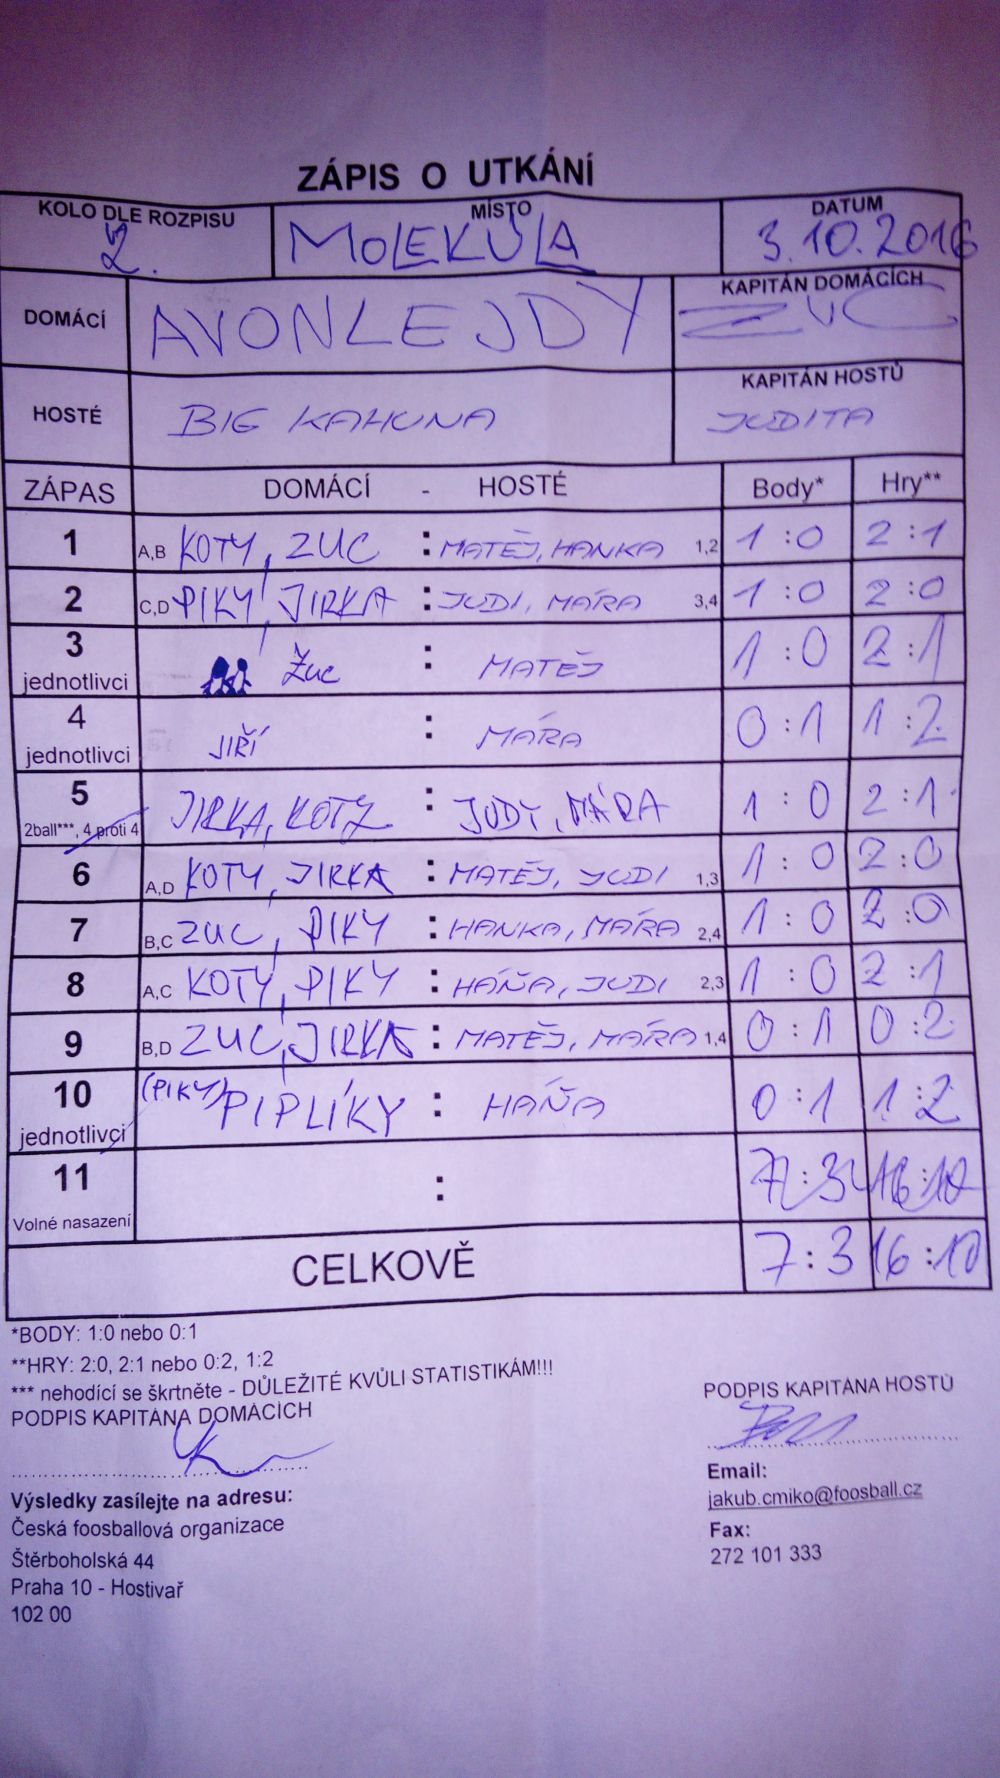 ZÁPIS O UTKÁNÍ
KOLO DLE ROZPISU MÍSTO DATUM
2. MOLEKULA 3.10.2016
DOMÁCÍ AVONLEJDY KAPITÁN DOMÁCÍCH
ZUC
HOSTÉ BIG KAHUNA KAPITÁN HOSTŮ
JUDITA
ZÁPAS DOMÁCÍ - HOSTÉ Body* Hry**
1 A,B KOTY, ZUC : MATĚJ, HANKA 1,2 1:0 2:1
2 C,D PIKY, JIRKA : JUDI, MÁRA 3,4 1:0 2:0
3 Žuc : MATĚJ 1:0 2:1
jednotlivci
4 JIŘÍ : MÁRA 0:1 1:2
jednotlivci
5 JIRKA, KOTY : JUDY, MÁRA 1:0 2:1
2ball***, 4 proti 4
6 A,D KOTY, JIRKA : MATĚJ, JUDI 1,3 1:0 2:0
7 B,C ZUC, PIKY : HANKA, MÁRA 2,4 1:0 2:0
8 A,C KOTY, PIKY : HÁŇA, JUDI 2,3 1:0 2:1
9 B,D ZUC, JIRKA : MATĚJ, MÁRA 1,4 0:1 0:2
10 (PIKY) PIPLÍKY : HÁŇA 0:1 1:2
jednotlivci
11 : 7:3 16:10
Volné nasazení
CELKOVĚ 7:3 16:10
*BODY: 1:0 nebo 0:1
**HRY: 2:0, 2:1 nebo 0:2, 1:2
*** nehodící se škrtněte - DŮLEŽITÉ KVŮLI STATISTIKÁM!!!
PODPIS KAPITÁNA DOMÁCÍCH PODPIS KAPITÁNA HOSTŮ
Výsledky zasílejte na adresu: Email:
Česká foosballová organizace jakub.cmiko@foosball.cz
Štěrboholská 44 Fax:
Praha 10 - Hostivař 272 101 333
102 00